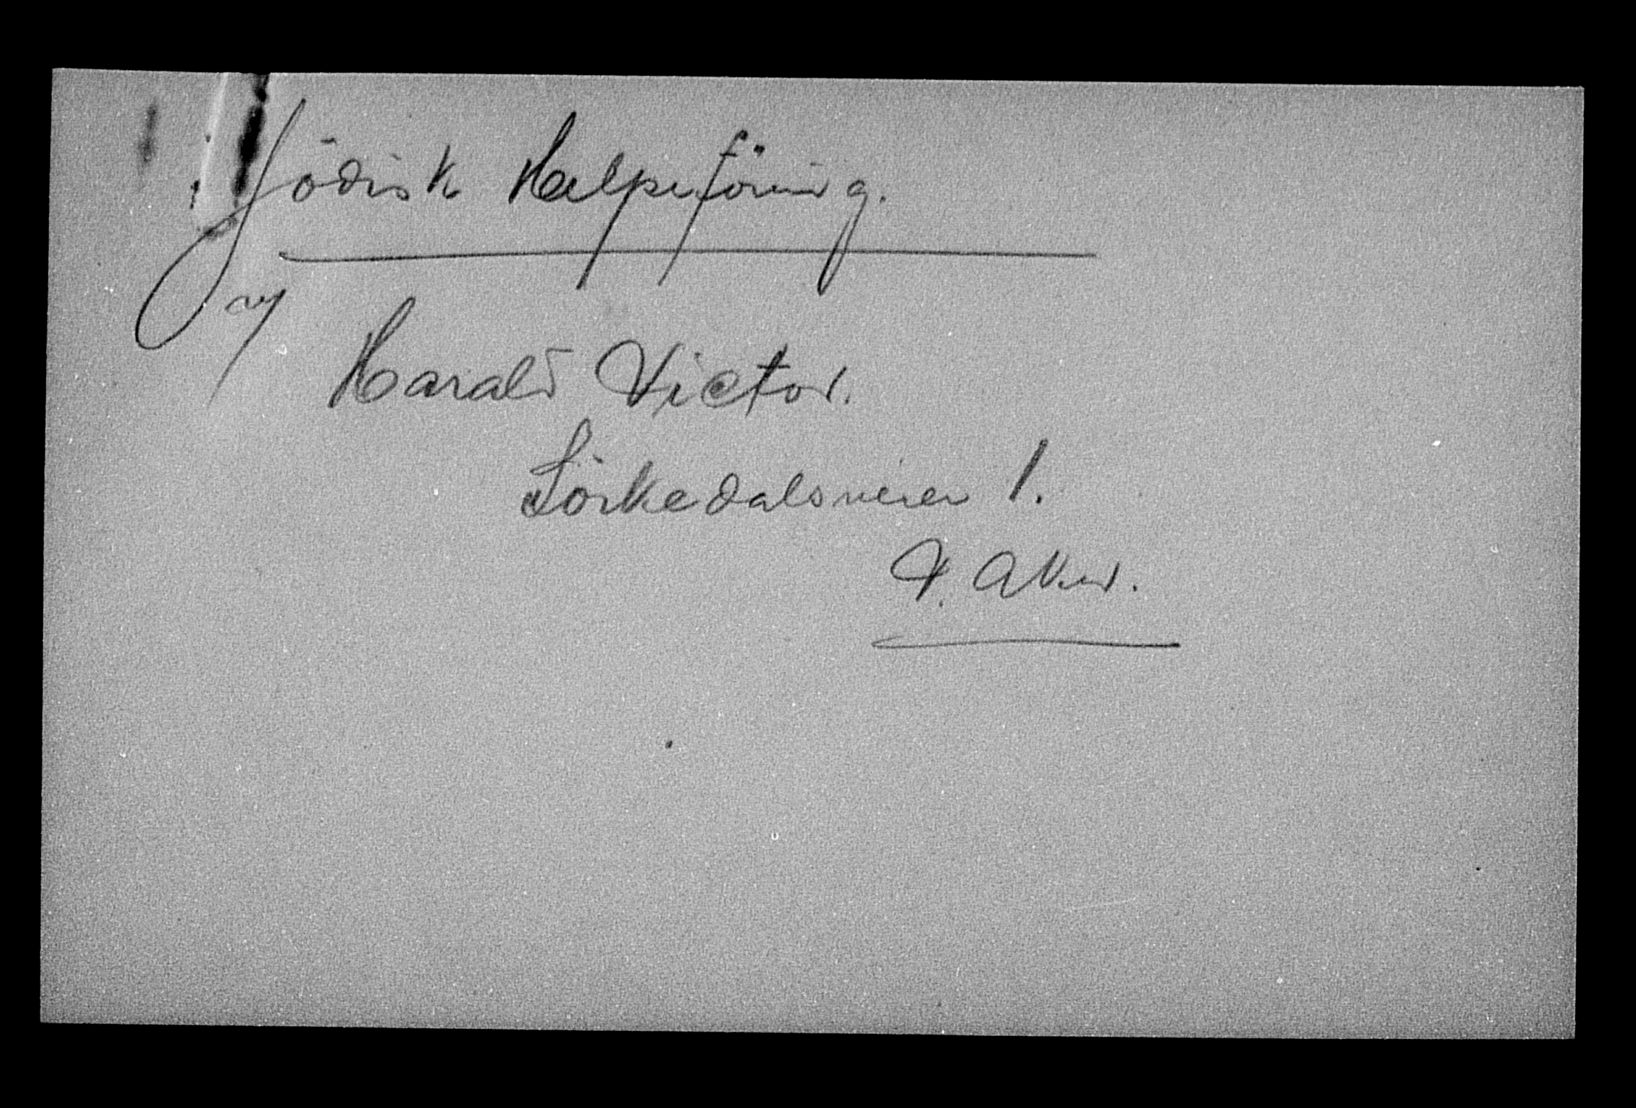 Jödisk Hælpeföring.
v/
Harald Victor.
Sörkedalsveien 1.
V. Aker.